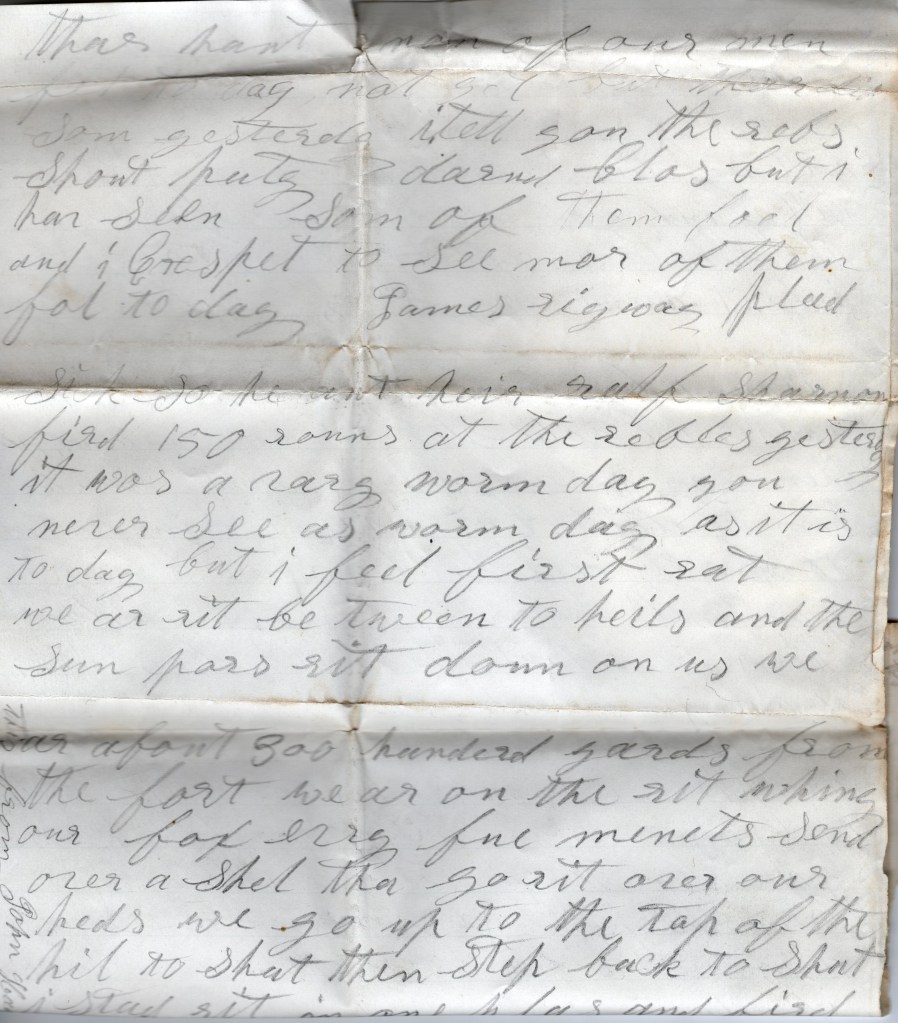 thar hant a man of our men
fel to day not yet but thar did
som yesterda i tell you the rebs
shout puty darnd clos but i
hav seen som of them fool
and i Crespet to see mor of them
fol to day James rigway plad
sick so he ant heir ralf sharnon
fird 150 rouns at the rebles yesterg
it was a varg worm day you
never see as worm day as it is
to day but i feel first rat
we ar rit be tween to heils and the
sun pors rit doun on us we
ar about 300 hunderd yards from
the fort we ar on the rit whing
our fox evry fue menets send
over a shel tha go rit over our
heds we go up to the top of the
hil to shut then step back to shut
i stad rit in one plas and fird
This from John